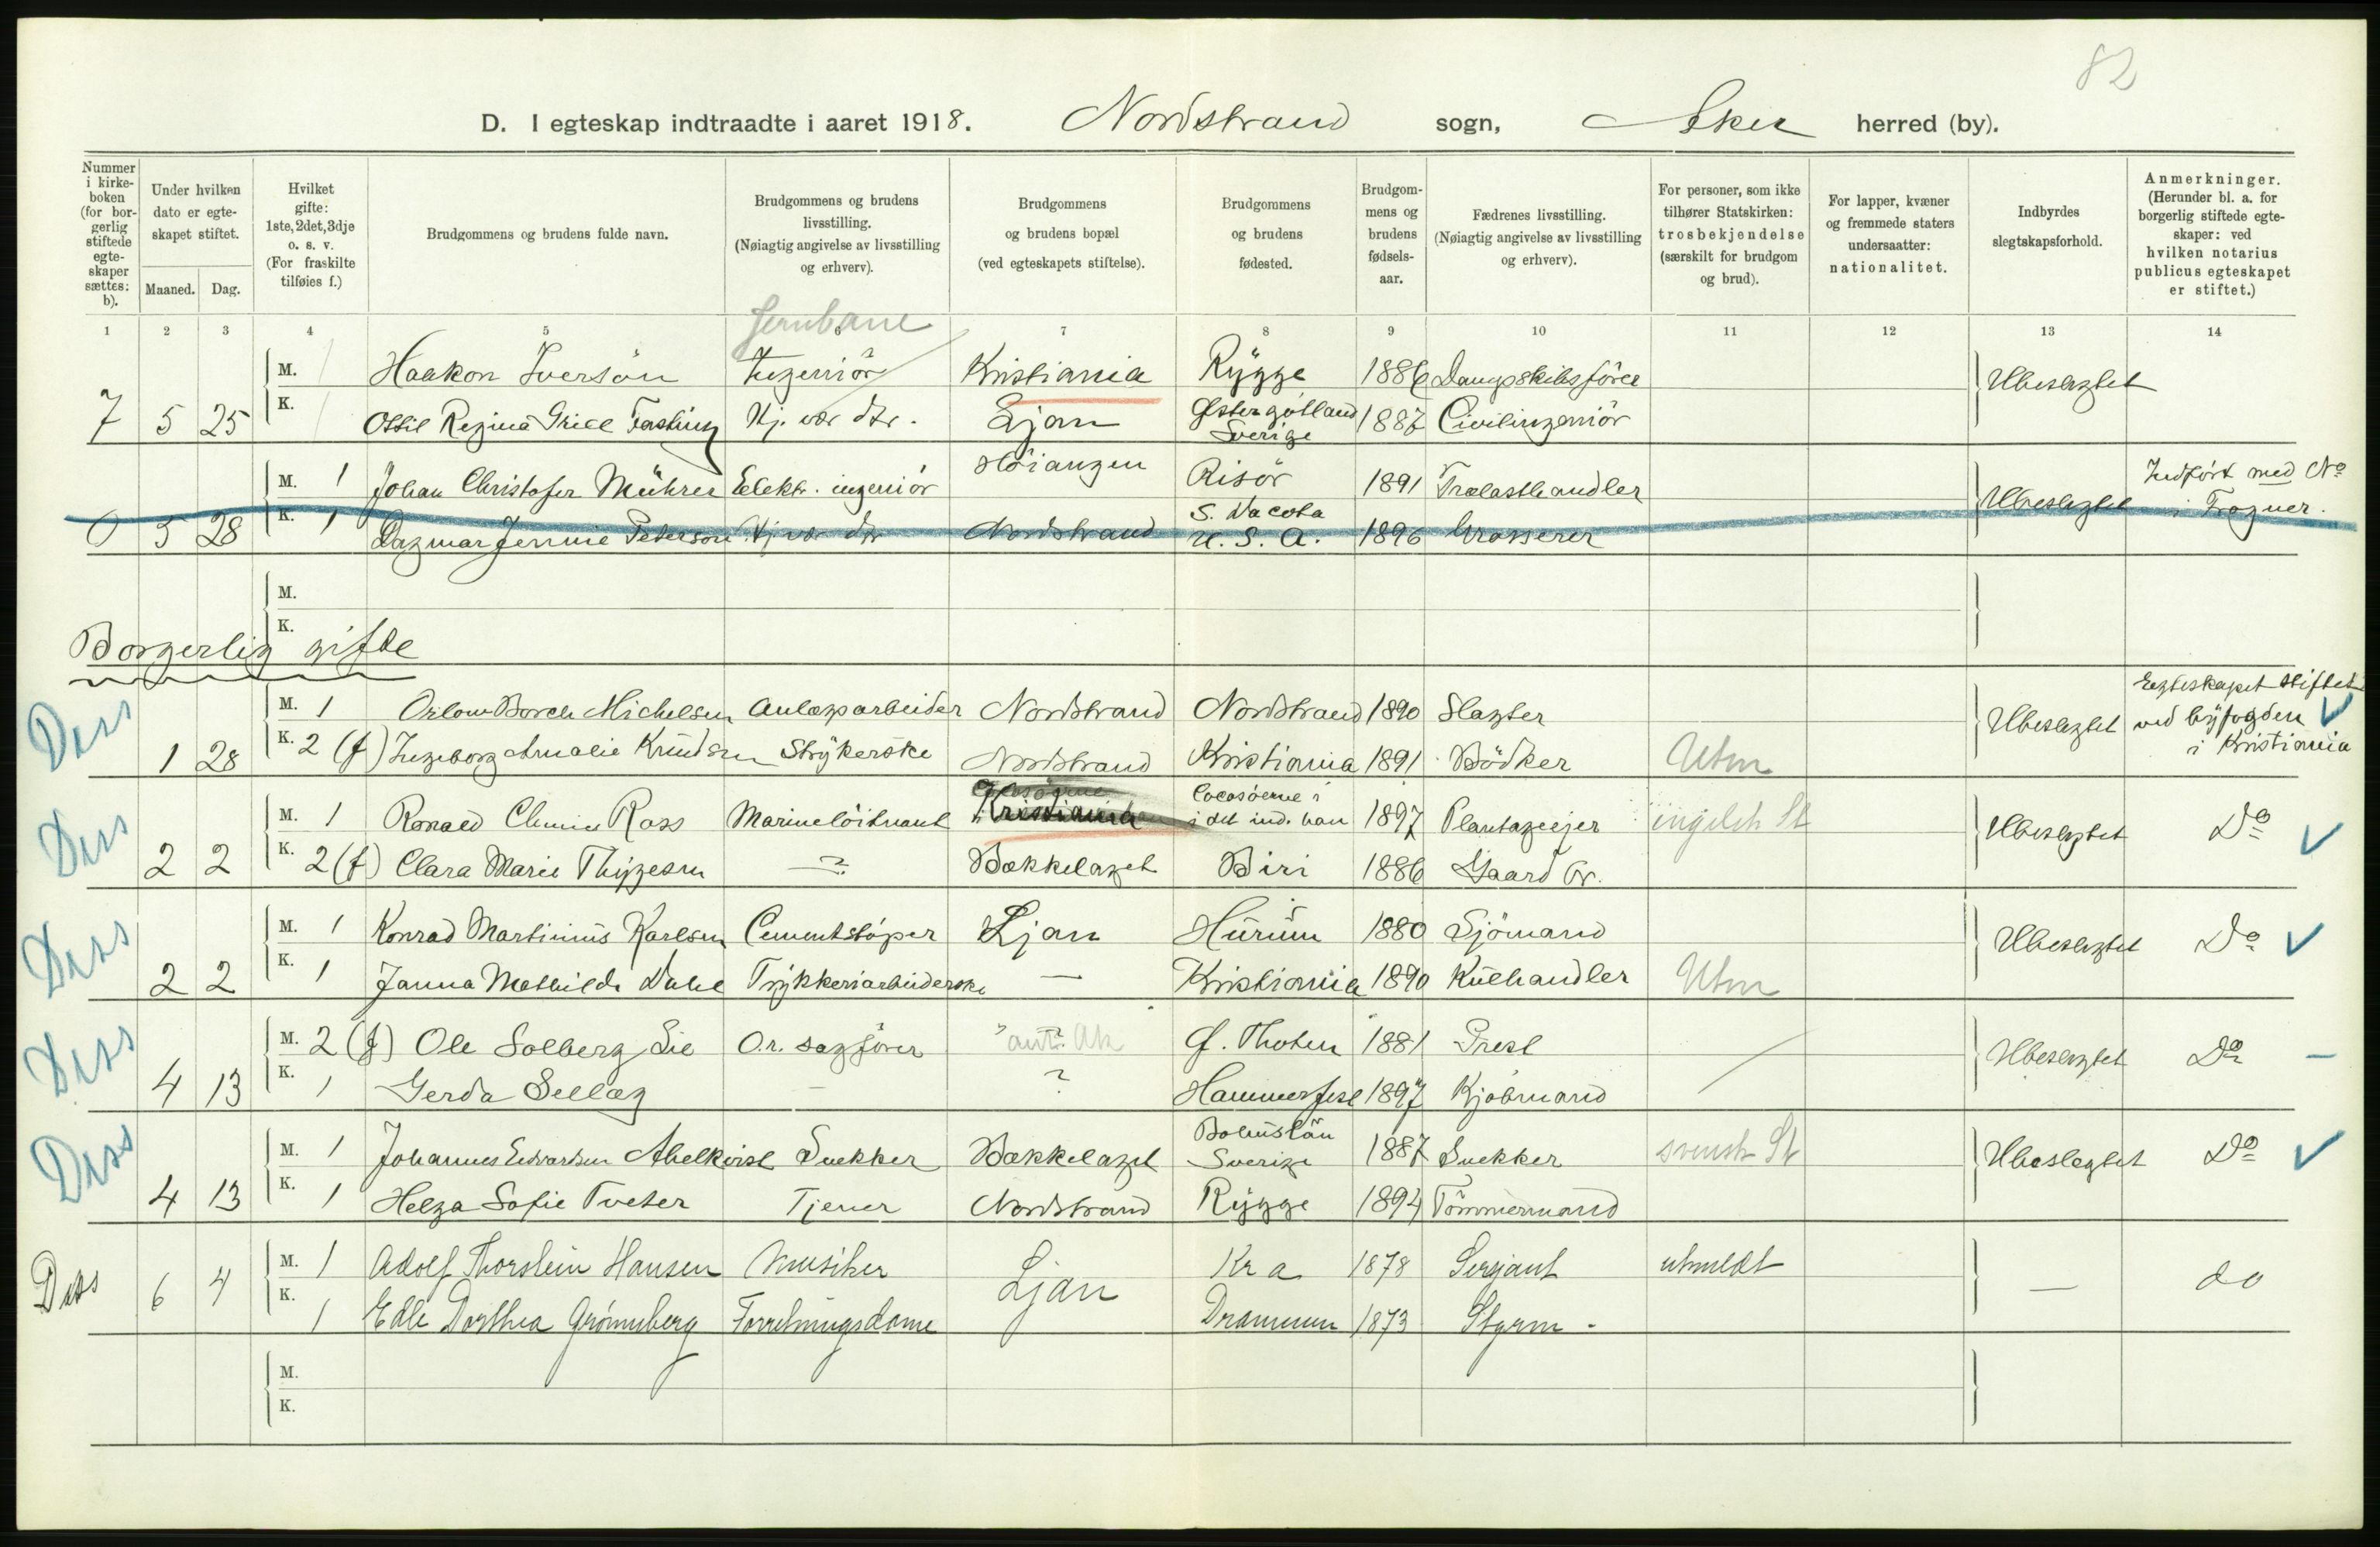 82
D. I egteskap indtraadte i aaret 1918. Nordstrand sogn, Aker herred (by).
Nummer i kirkeboken (for borgerlig stiftede egteskaper sættes: b).
Under hvilken dato er egteskapet stiftet.
Maaned. Dag.
Hvilket gifte: 1ste, 2det, 3dje o. s. v. (For fraskilte tilføies f.)
Brudgommens og brudens fulde navn.
Brudgommens og brudens livsstilling. (Nøiagtig angivelse av livsstilling og erhverv).
Brudgommens og brudens bopæl (ved egteskapets stiftelse).
Brudgommens og brudens fødested.
Brudgommens og brudens fødselsaar.
Fædrenes livsstilling. (Nøiagtig angivelse av livsstilling og erhverv).
For personer, som ikke tilhører Statskirken: trosbekjendelse (særskilt for brudgom og brud).
For lapper, kvæner og fremmede staters undersaatter: nationalitet.
Indbyrdes slegtskapsforhold.
Anmerkninger. (Herunder bl. a. for borgerlig stiftede egteskaper: ved hvilken notarius publicus egteskapet er stiftet.)
1 2 3 4 5 6 7 8 9 10 11 12 13 14
Jernbane
M. Haakon Iversön Ingeniör Kristiania Rygge 1886 Dampskibsförer Ubeslegtet
7 5 25 K. Ottil Regina Grice Fasting Hj. vær. dtr. Ljan Østergötland Sverige 1887 Civilingeniör
M. 1 Johan Christofer Mührer Elektr. ingeniör Höiangen Risör 1891 Trælasthandler Ubeslegtet Indfört med No i Frogner.
0 5 28 K. 1 Dagmar Jennie Peterson Hj. vær. dtr Nordstrand S. Dacota U. S. A. 1896 Grosserer
M.
K.
Borgerlig gifte
Diss M. 1 Oskar Borch Michelsen Anlægsarbeider Nordstrand Nordstrand 1890 Slagter Ubeslegtet Egteskapet stiftet ved byfogden i Kristiania
1 28 K. 2 (f) Ingeborg Amalie Knudsen Strykerske Nordstrand Kristiania 1891 Bödker Utm
Diss M. 1 Ronald Clunies Ross Marinelöitnant Kristiania Cocosöerne i det ind. hav 1897 Plantageejer engelsk St Ubeslegtet Do
2 2 K. 2 (f) Clara Marie Thygesen — Bækkelaget Biri 1886 Gaardbr.
Diss M. 1 Konrad Martinius Karlsen Cementstöper Ljan Hurum 1880 Sjömand Ubeslegtet Do
2 2 K. 1 Janna Mathilde Dahl Trykkeriarbeiderske — Kristiania 1890 Kulhandler Utm
Diss M. 2 (f) Ole Solberg Lie O.r. sagförer ? ant. Ak Ø. Thoten 1881 Prest Ubeslegtet Do —
4 13 K. 1 Gerda Sellæg — ? Hammerfest 1897 Kjöbmand
Diss M. 1 Johannes Edvardsen Abelkvist Snekker Bækkelaget Bohuslän Sverige 1887 Snekker svensk St Ubeslegtet Do
4 13 K. 1 Helga Sofie Tveter Tjener Nordstrand Rygge 1894 Tömmermand
Diss M. 1 Adolf Thorstein Hansen Musiker Ljan Kra 1878 Sergant utmeldt — do
6 4 K. 1 Edle Dorthea Grønneberg Forretningsdame Drammen 1873 Styrm.
M.
K.